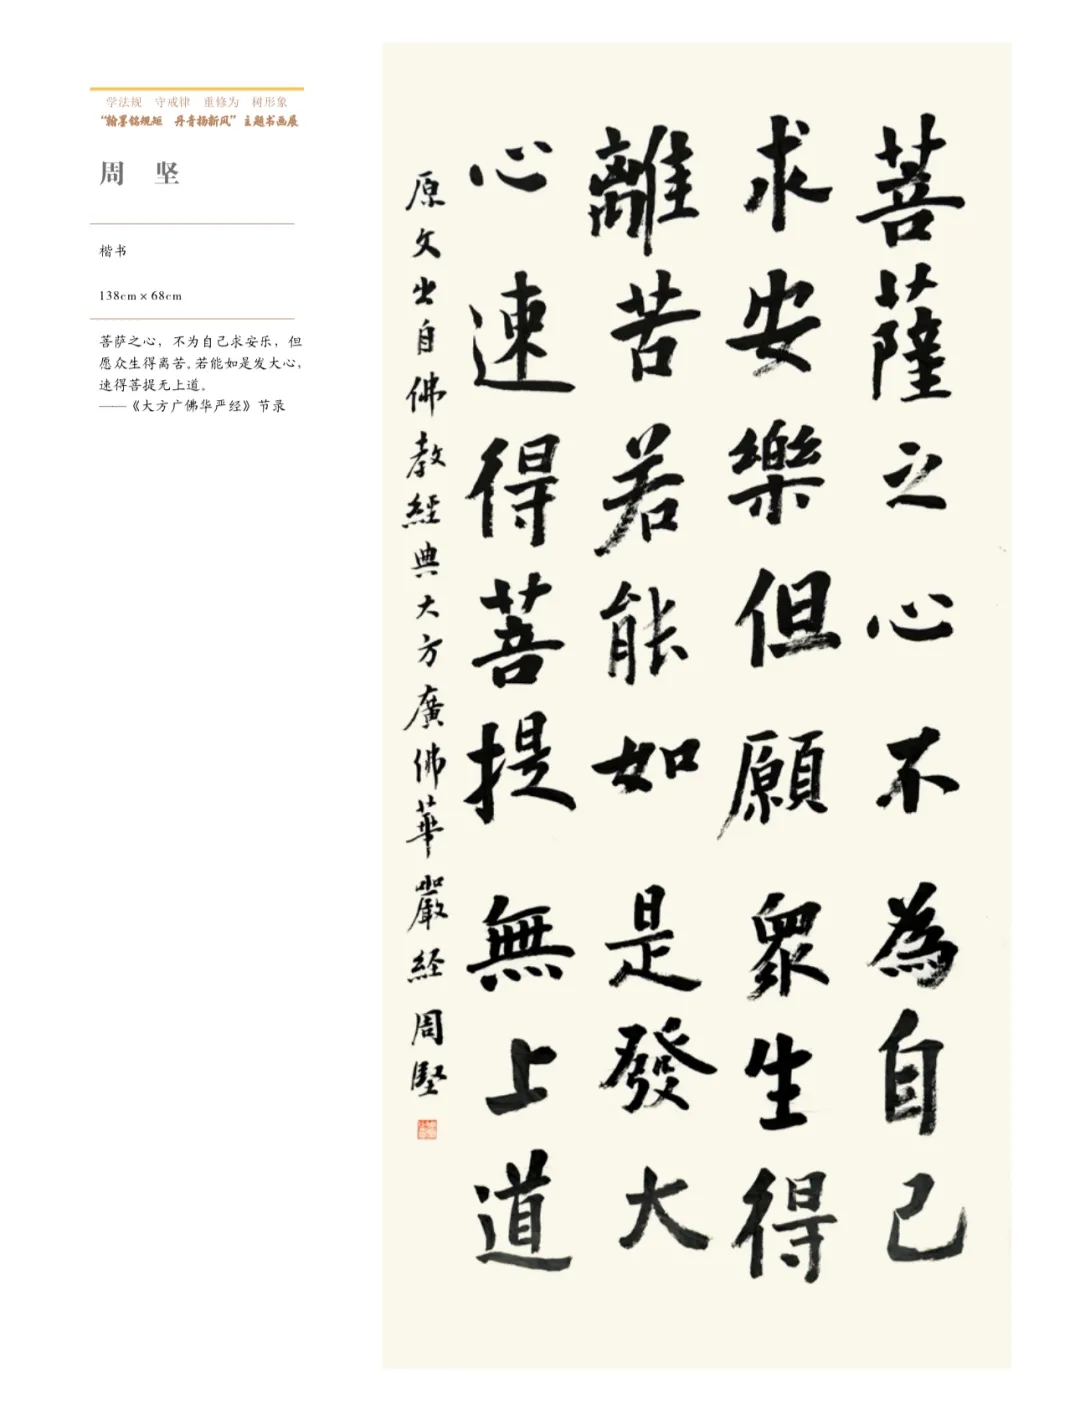 学法规　守戒律　重修为　树形象
“翰墨铭规矩　丹青扬新风”主题书画展
周　坚
楷书
138cm × 68cm
菩萨之心，不为自己求安乐，但
愿众生得离苦。若能如是发大心，
速得菩提无上道。
——《大方广佛华严经》节录
菩薩之心不為自己
求安樂但願眾生得
離苦若能如是發大
心速得菩提無上道
原文出自佛教經典大方廣佛華嚴经周堅